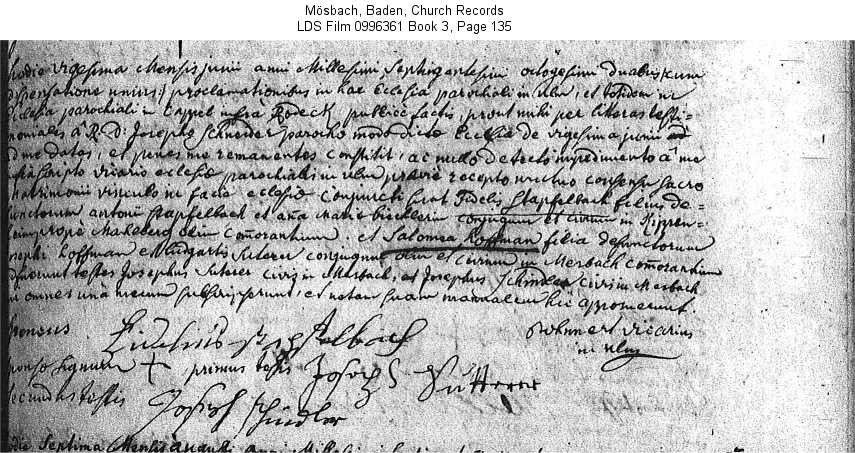 Mösbach, Baden, Church Records
LDS Film 0996361 Book 3, Page 135
hodie vigesima Mensis junii anni Millesimi Septingentesimi octogesimi duabus cum
dispensatione unius proclamationibus in hac Ecclesia parochiali in ulm, et totidem in
Ecclesia parochiali in Cappel infra Rodeck publice factis, prout mihi per litteras testi-
moniales à R. D. Josepho Schneider parocho modo dictae Ecclesiae de vigesima junii
ad me datas, et penes me remanentes constitit, ac nullo detecto impedimento à me
infrascripto vicario ecclesiae parochialis in ulm praevie recepto mutuo consensu sacro
matrimonii vinculo in facie ecclesiae conjuncti sunt Fidelis Stapfelbach filius de-
functorum antonii Stapfelbach et anna maria conjugum et civium in Kippen-
heim prope Mahlberg olim comorantium et Salomea Hoffman filia defunctorum
josephi Hoffman et Luidgardis Suterer conjugum olim et civium in Mersbach comorantium
adfuerunt testes Josephus Suterer civis in Mersbach, et Josephus Schindler civis in Mersbach
qui omnes unà mecum subscripserunt, et notam suam manualem hic apposuerunt.
sponsus Stapfelbach vicarius
in ulm
sponsae signum + primus testis Joseph Sutterer
secundus testis Joseph Schindler
hodie Septima Mensis